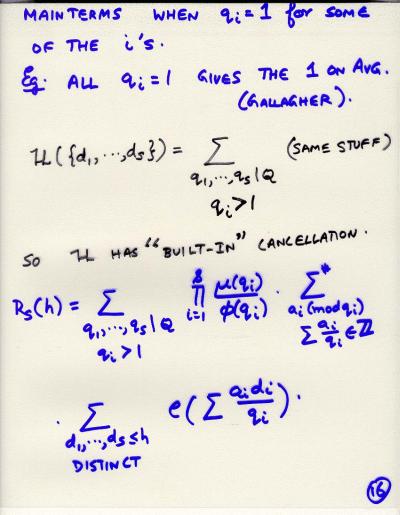 MAIN TERMS WHEN q_i = 1 for SOME
OF THE i's.
Eg: ALL q_i = 1 GIVES THE 1 ON AVG.
(GALLAGHER).
𝔖_0({d_1, ⋯, d_s}) = ∑_{q_1, ⋯, q_s | Q, q_i > 1} (SAME STUFF)
SO 𝔖_0 HAS "BUILT-IN" CANCELLATION.
R_s(h) = ∑_{q_1, ⋯, q_s | Q, q_i > 1} ∏_{i=1}^{s} μ(q_i)/ϕ(q_i) · ∑^*_{a_i (mod q_i), ∑ a_i/q_i ∈ ℤ}
· ∑_{d_1, ⋯, d_s ≤ h DISTINCT} e(∑ a_i d_i / q_i).
16